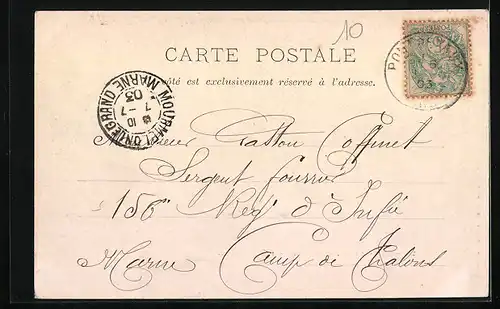 10
CARTE POSTALE
côté est exclusivement réservé à l'adresse.
MOURMELON-LE-GRAND MARNE
10
7 - 7
03
03
Monsieur Gaston Coffinet
Sergent fourrier
156e Regt d'Infie
Marne Camp de Chalons